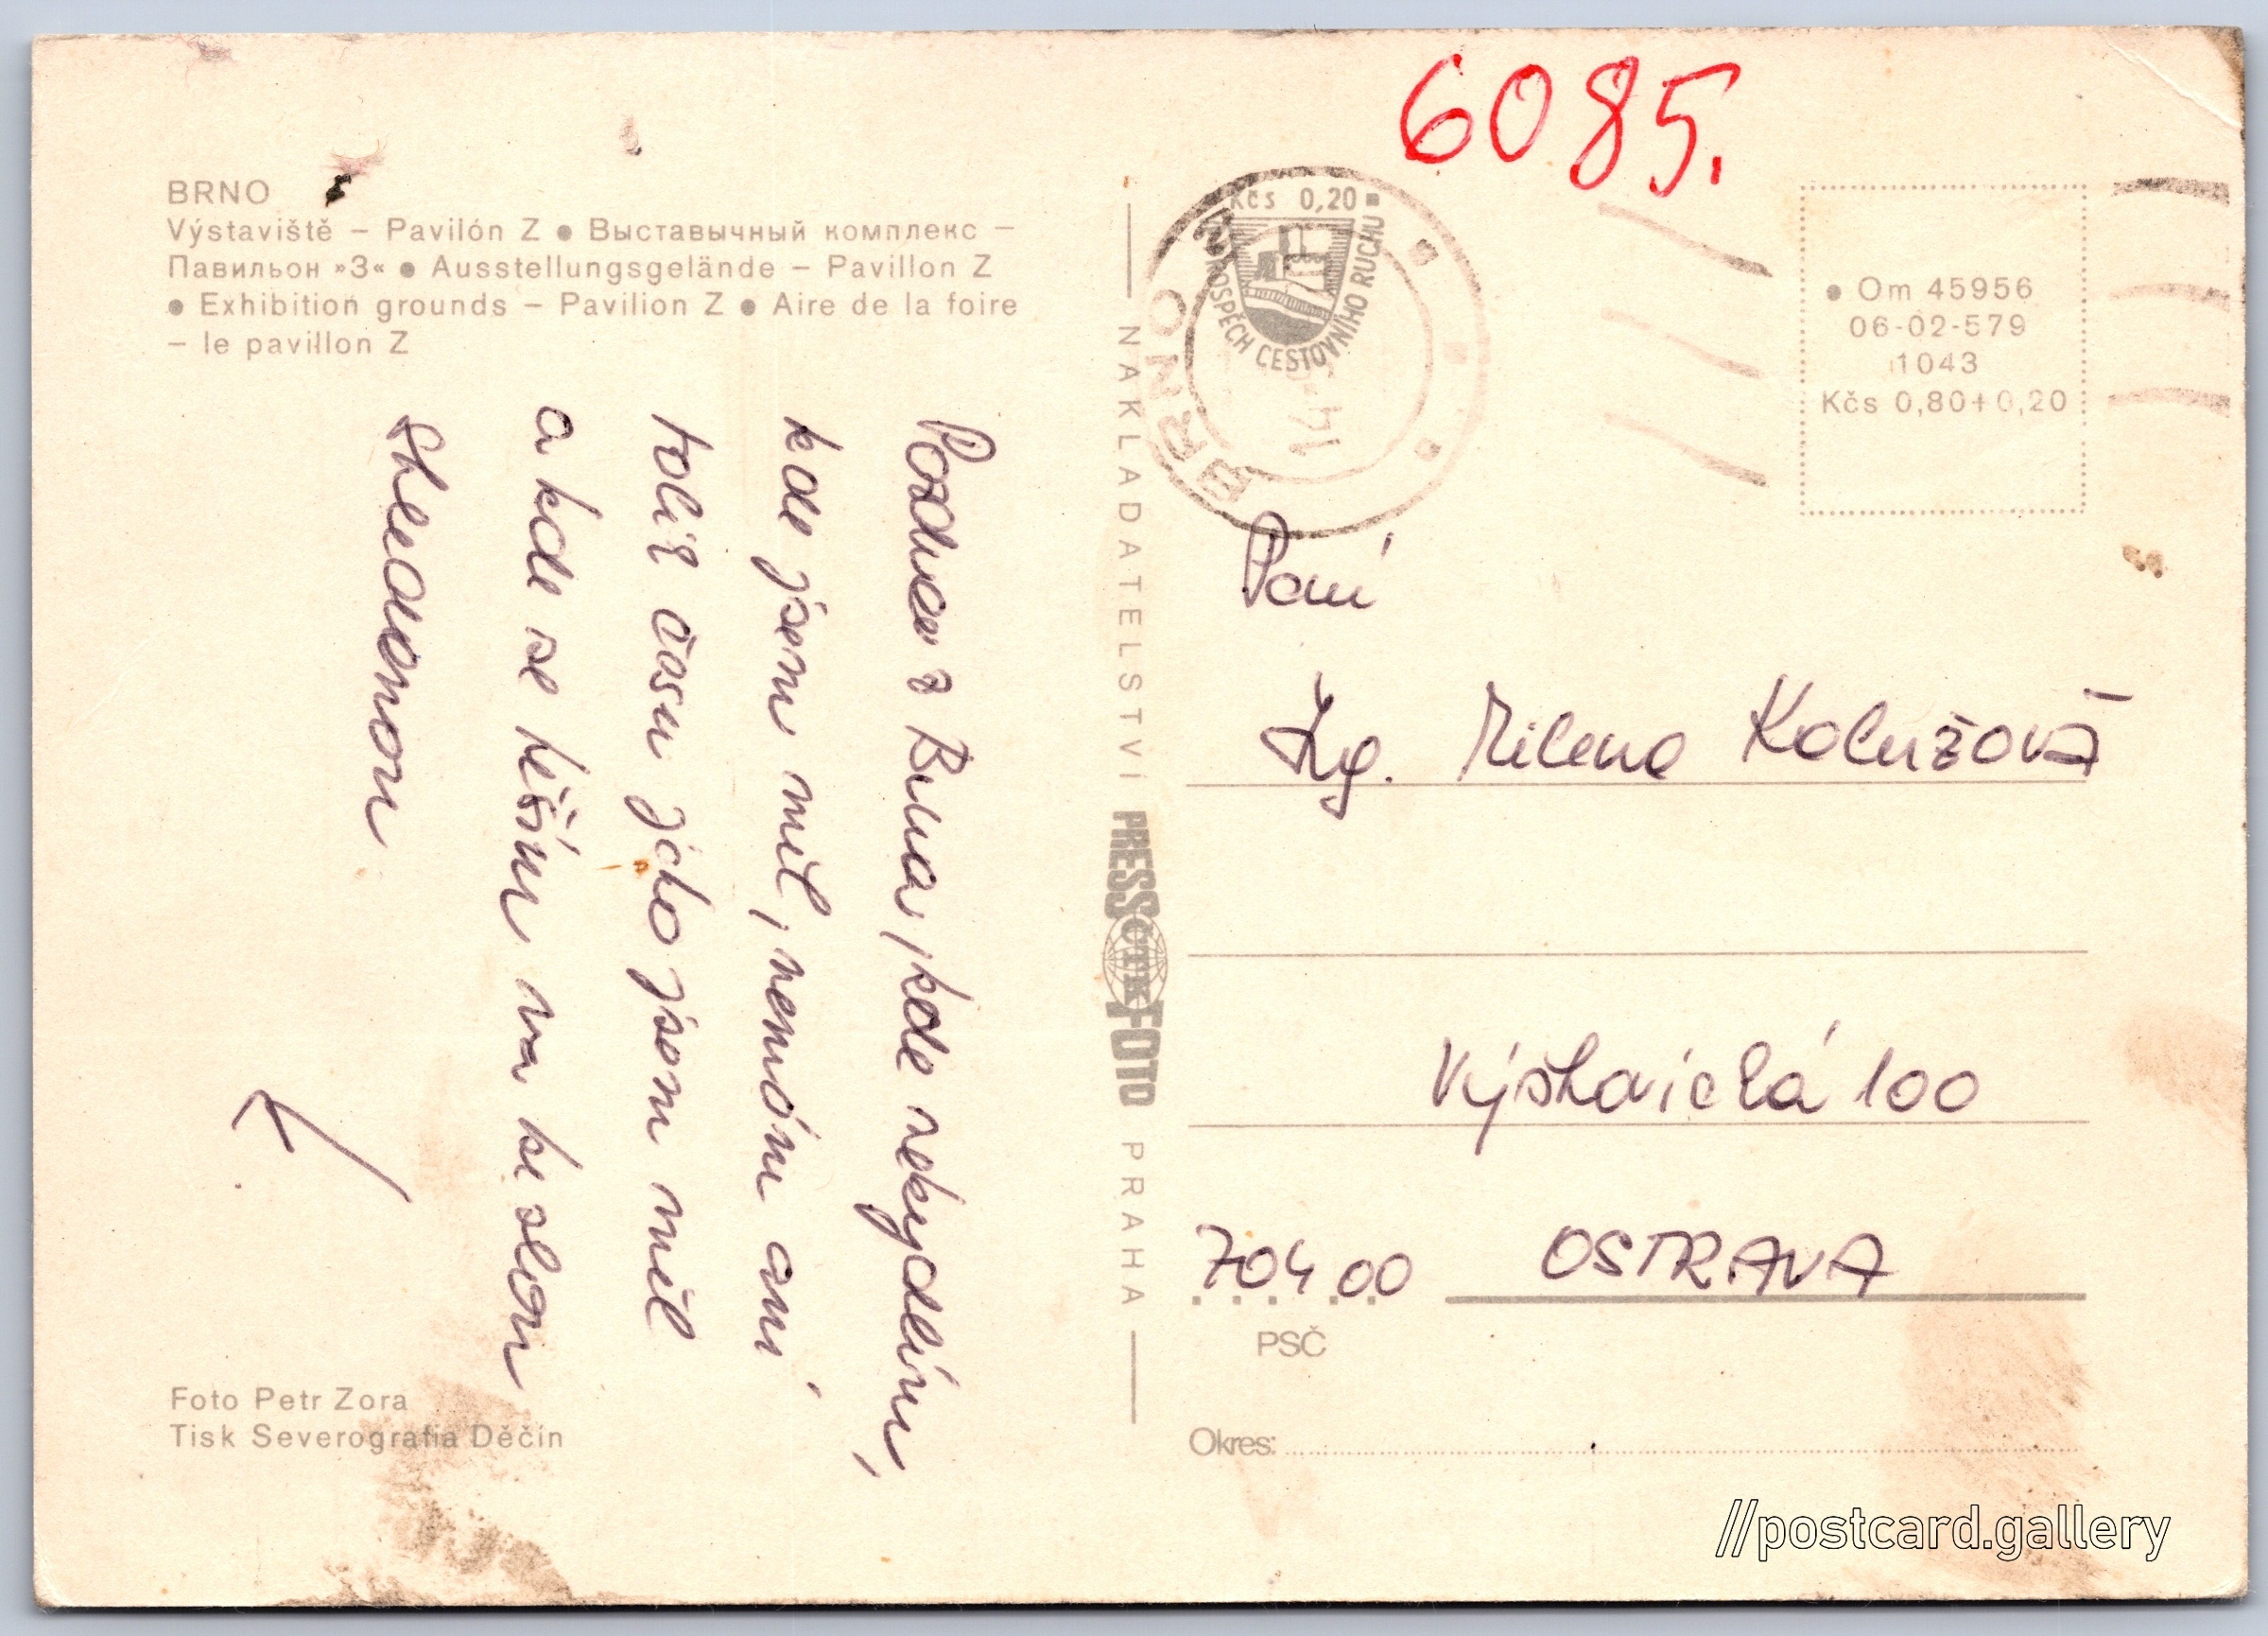 6085.
BRNO
Výstaviště – Pavilón Z ● Выставычный комплекс –
Павильон »З« ● Ausstellungsgelände – Pavillon Z
● Exhibition grounds – Pavilion Z ● Aire de la foire
– le pavillon Z
Pozdrav z Brna, kde nebydlím,
kde jsem měl, nemám ani
tolik času jako jsem měl
a kde se těším na ke slon
shledanou
Foto Petr Zora
Tisk Severografia Děčín
NAKLADATELSTVÍ PRESSFOTO PRAHA
ČTK
Kčs 0,20
VE PROSPĚCH CESTOVNÍHO RUCHU
BRNO
● Om 45956
06-02-579
1043
Kčs 0,80+0,20
Paní
Ing. Milena Kolužová
Výstavická 100
704 00 OSTRAVA
PSČ
Okres:
//postcard.gallery